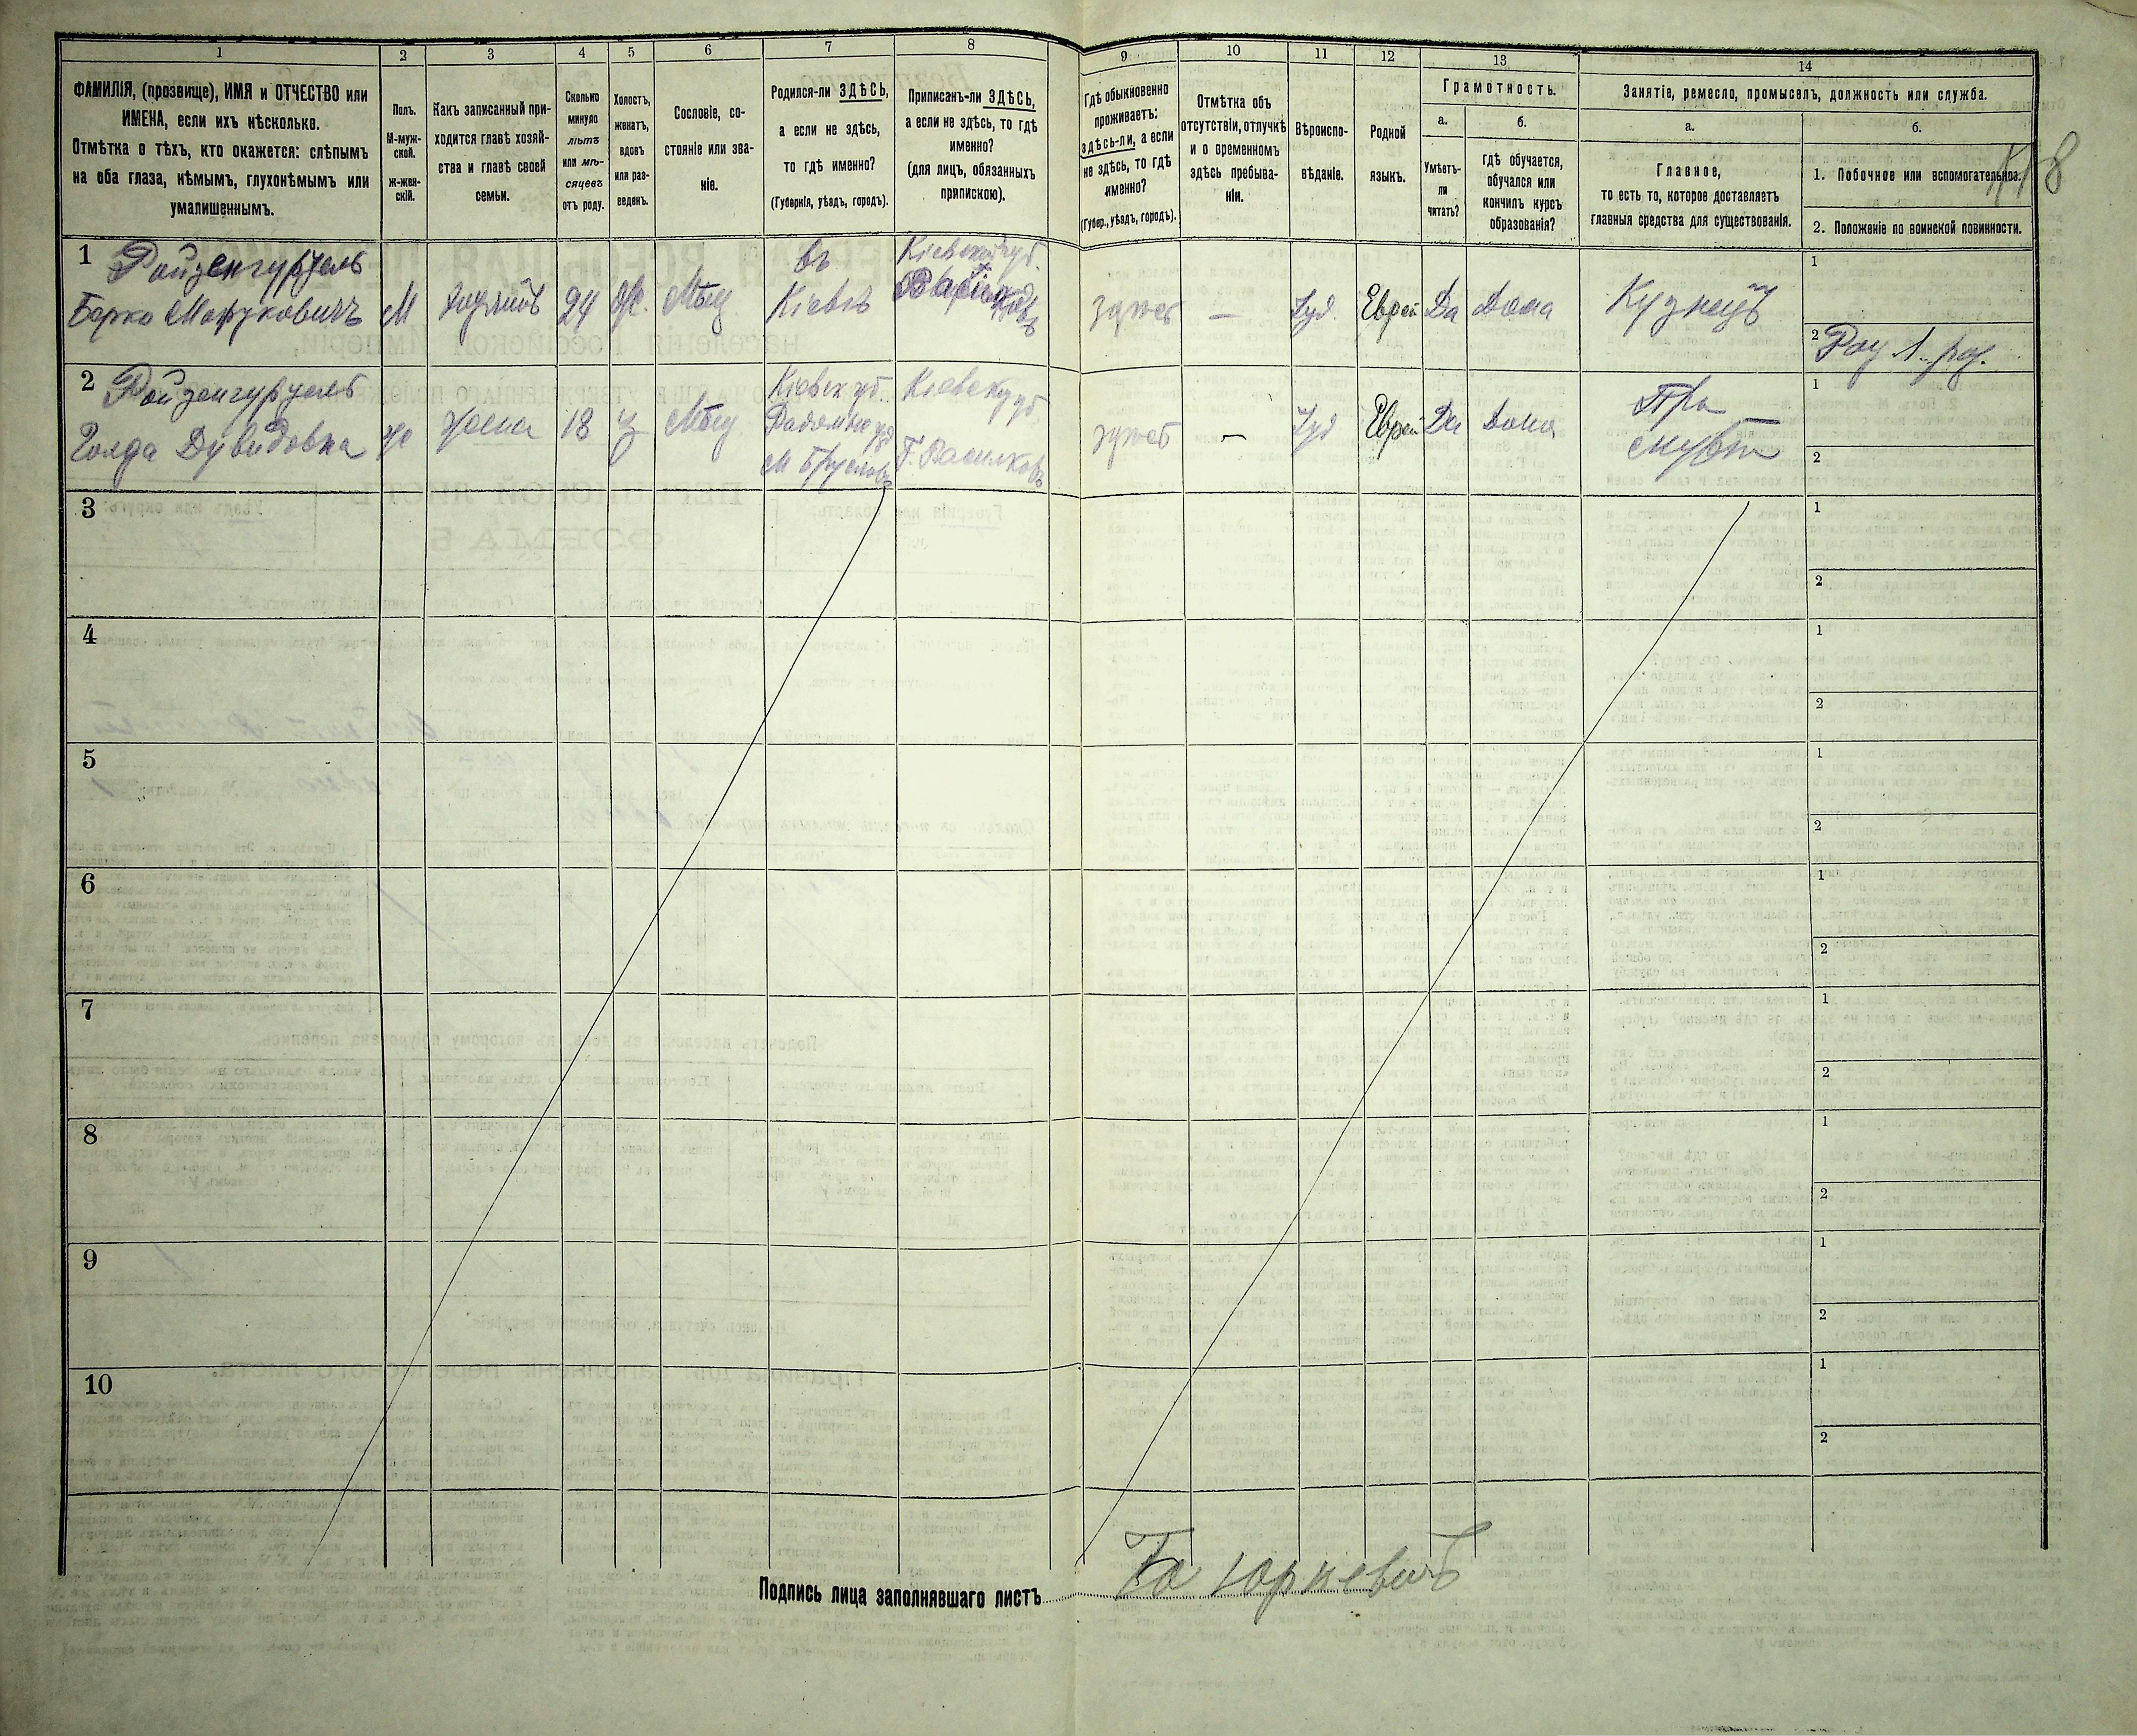 1 2 3 4 5 6 7 8 9 10 11 12 13 14
ФАМИЛІЯ, (прозвище), ИМЯ и ОТЧЕСТВО или
ИМЕНА, если ихъ нѣсколько.
Отмѣтка о тѣхъ, кто окажется: слѣпымъ
на оба глаза, нѣмымъ, глухонѣмымъ или
умалишеннымъ.
Полъ.
М-муж-
ской.
ж-жен-
скій.
Какъ записанный при-
ходится главѣ хозяй-
ства и главѣ своей
семьи.
Сколько
минуло
лѣтъ
или мѣ-
сяцевъ
отъ роду.
Холостъ,
женатъ,
вдовъ
или раз-
веденъ.
Сословіе, со-
стояніе или зва-
ніе.
Родился-ли ЗДѢСЬ,
а если не здѣсь,
то гдѣ именно?
(Губернія, уѣздъ, городъ).
Приписанъ-ли ЗДѢСЬ,
а если не здѣсь, то гдѣ
именно?
(для лицъ, обязанныхъ
припискою).
Гдѣ обыкновенно
проживаетъ:
здѣсь-ли, а если
не здѣсь, то гдѣ
именно?
(Губер., уѣздъ, городъ).
Отмѣтка объ
отсутствіи, отлучкѣ
и о временномъ
здѣсь пребыва-
ніи.
Вѣроиспо-
вѣданіе.
Родной
языкъ.
Грамотность.
а.
Умѣетъ-
ли
читать?
б.
гдѣ обучается,
обучался или
кончилъ курсъ
образованія?
Занятіе, ремесло, промыселъ, должность или служба.
а.
Главное,
то есть то, которое доставляетъ
главныя средства для существованія.
б.
1. Побочное или вспомогательное.
2. Положеніе по воинской повинности.
1
Берко
М
24
Мѣщ
въ
Кіевѣ
Кіевской губ.
—
Іуд.
Еврей
Да
Дома
Кузнецъ
1
2
2
Голда Дувидовна
ж
жена
18
Мѣщ
Кіевск губ.
Кіевск губ.
Г. Васильковъ
—
Іуд
Еврей
Да
Дома
1
2
3
1
2
4
1
2
5
1
2
6
1
2
7
1
2
8
1
2
9
1
2
10
1
2
Подпись лица заполнявшаго листъ